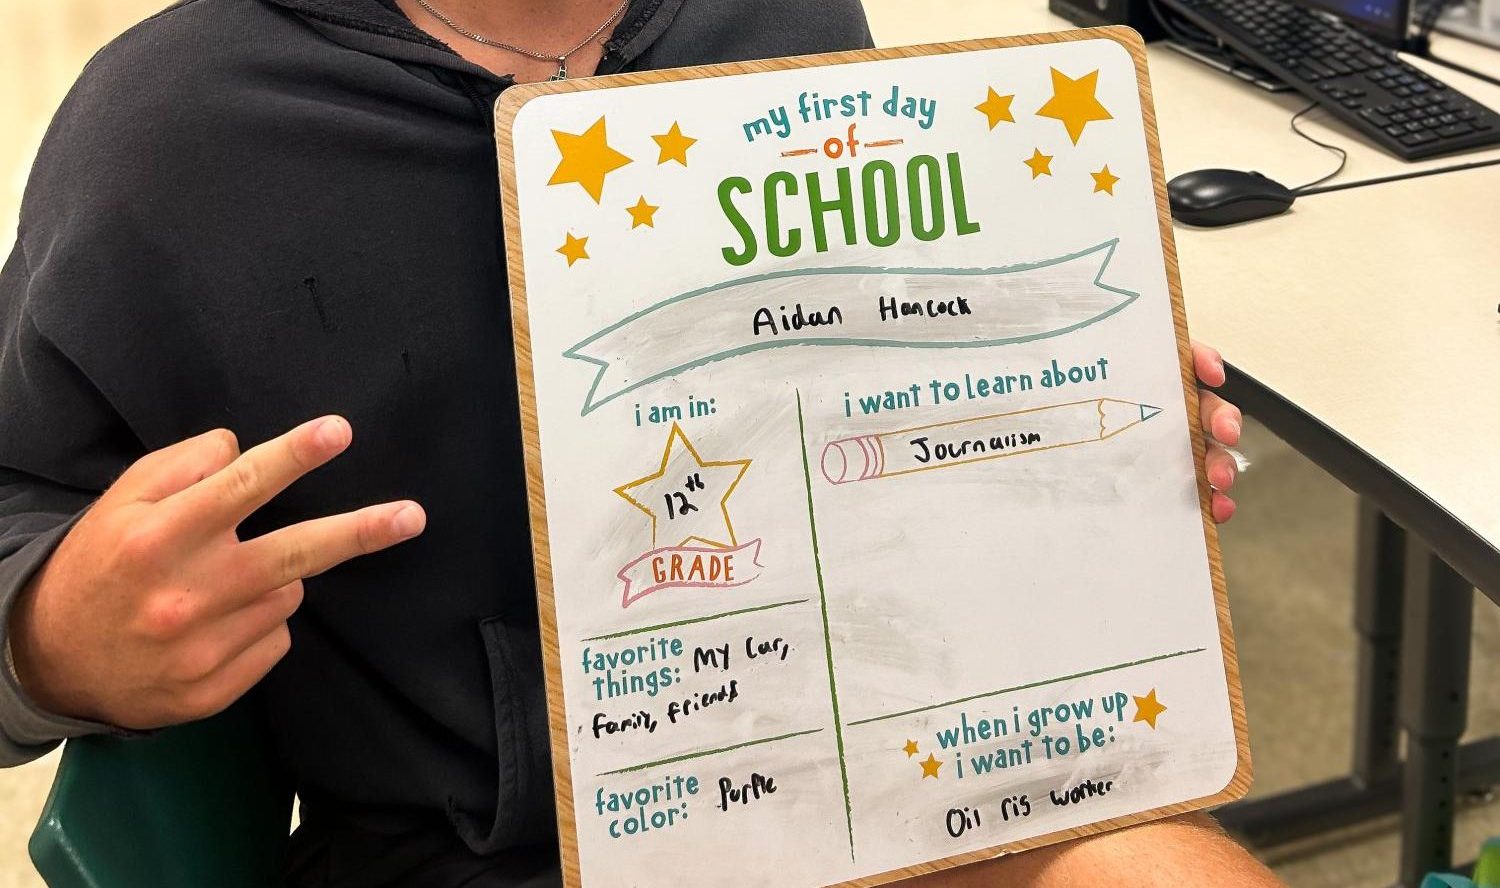 my first day
of
SCHOOL
Aidan Hancock
i am in:
12th
GRADE
favorite
things: My Car,
Family, friends
favorite
color: Purple
i want to learn about
Journalism
when i grow up
i want to be:
Oil rig worker